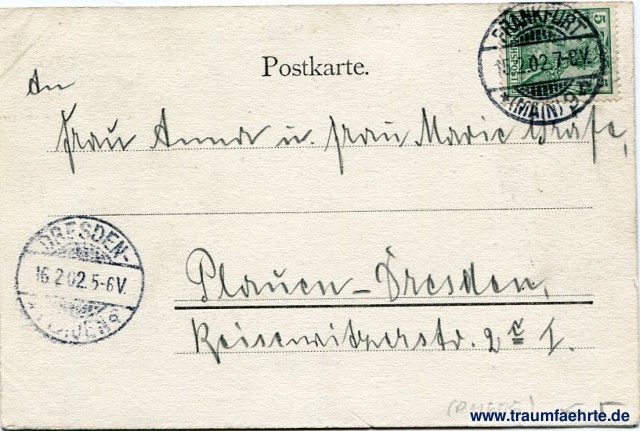 Postkarte.
An
Frau Anna u. Frau Marie Grafe,
Plauen-Dresden,
Reisewitzerstr. 2c I.
FRANKFURT
15.2.02.7-8V.
*(MAIN)9*
5
DRESDEN-
16.2.02.5-6V.
PLAUEN
www.traumfaehrte.de